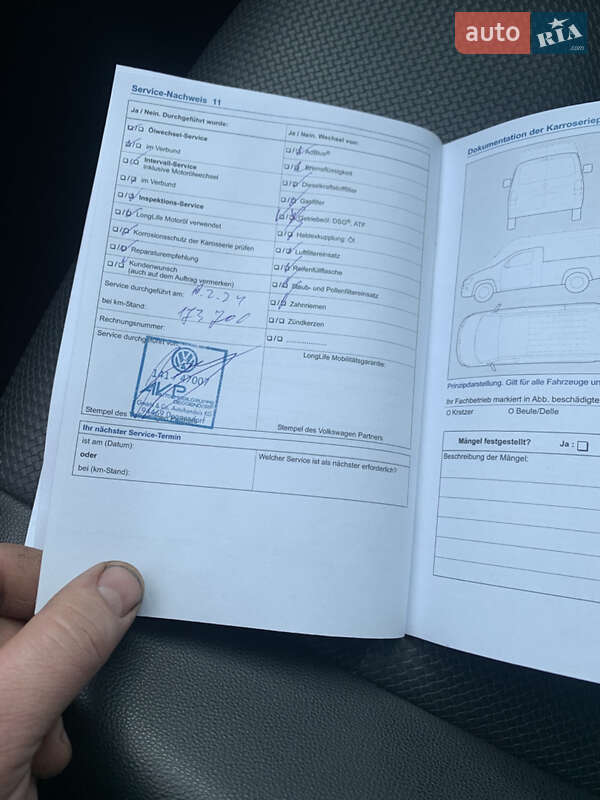 auto RIA .com
Service-Nachweis 11
Ja / Nein. Durchgeführt wurde:
Ölwechsel-Service
im Verbund
Intervall-Service
inklusive Motorölwechsel
im Verbund
Inspektions-Service
LongLife Motoröl verwendet
Korrosionsschutz der Karosserie prüfen
Reparaturempfehlung
Kundenwunsch
(auch auf dem Auftrag vermerken)
Service durchgeführt am:
bei km-Stand: 173 700
Rechnungsnummer:
Service durchgeführt von:
141 - 47007
AVP
GmbH & Co. Autohandels KG
94469 Deggendorf
Stempel des Volkswagen
Ja / Nein. Wechsel von:
AdBlue®
Bremsflüssigkeit
Dieselkraftstofffilter
Gasfilter
Getriebeöl: DSG®, ATF
Haldexkupplung: Öl
Luftfiltereinsatz
Reifenfüllflasche
Staub- und Pollenfiltereinsatz
Zahnriemen
Zündkerzen
LongLife Mobilitätsgarantie:
Stempel des Volkswagen Partners
Ihr nächster Service-Termin
ist am (Datum):
oder
bei (km-Stand):
Welcher Service ist als nächster erforderlich?
Dokumentation der Karosseriep
Prinzipdarstellung. Gilt für alle Fahrzeuge un
Ihr Fachbetrieb markiert in Abb. beschädigte
O Kratzer O Beule/Delle
Mängel festgestellt? Ja :
Beschreibung der Mängel: